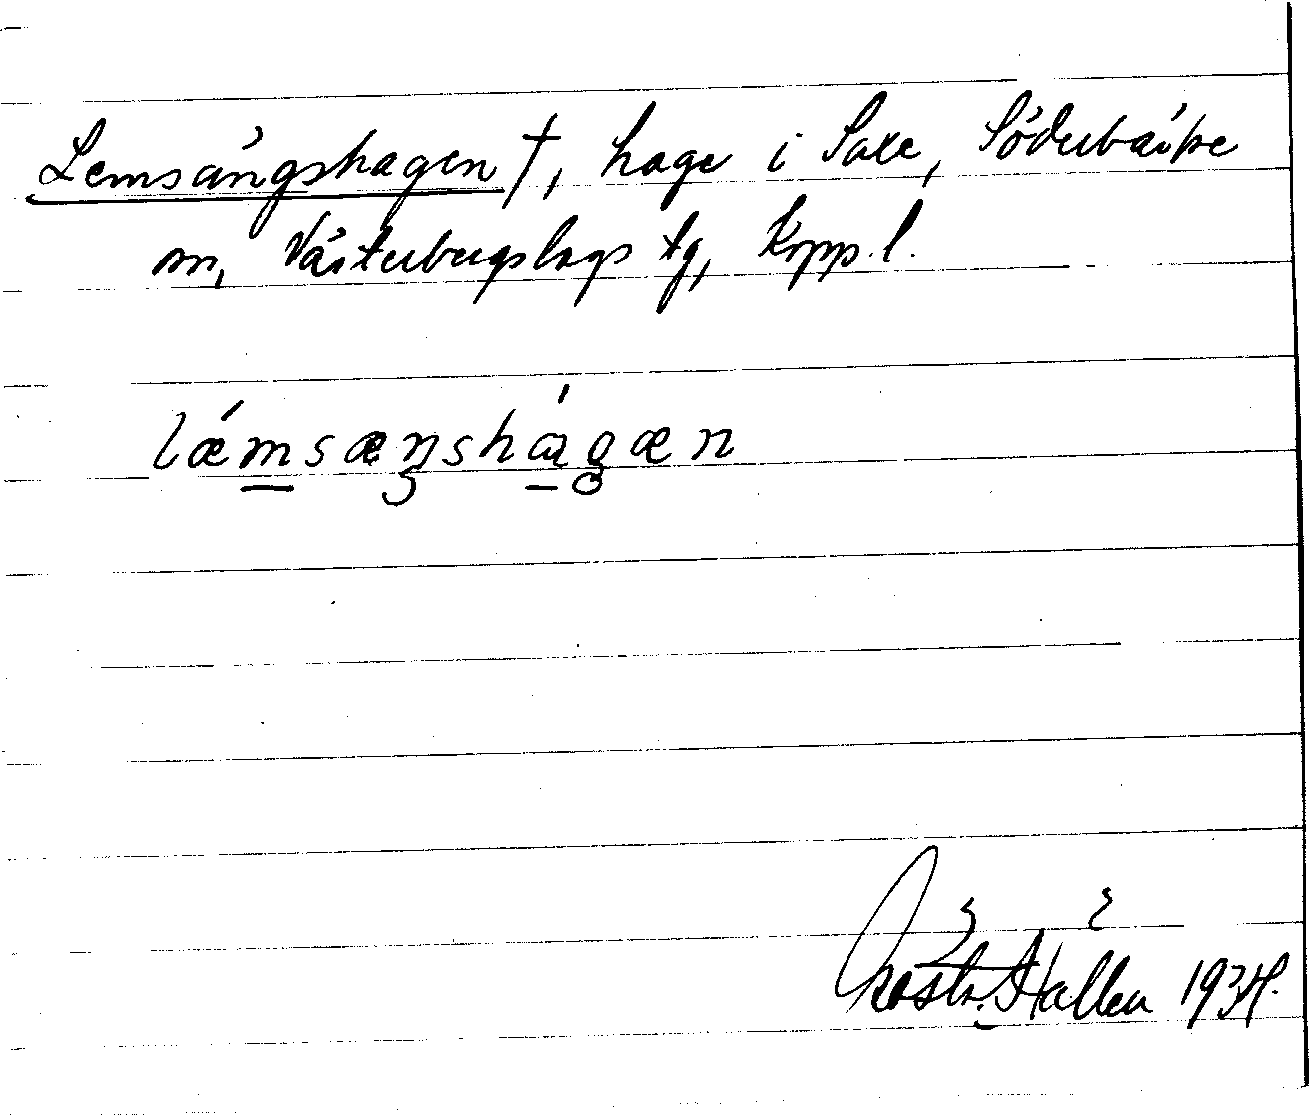 Lemsängshagen †, hage i Saxe, Söderbärke
sn, Västerbergslags tg, Kopp. l.
lǽmsæŋshágæn
Hallén 1934.